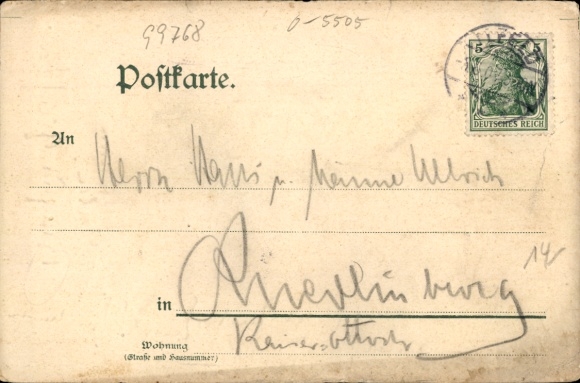 G9768
0-5505
5 5
DEUTSCHES REICH
Postkarte.
An
Herrn Hans u. Ullrich
14
in Quedlinburg
Kaiser-Ottostr.
Wohnung
(Straße und Hausnummer)